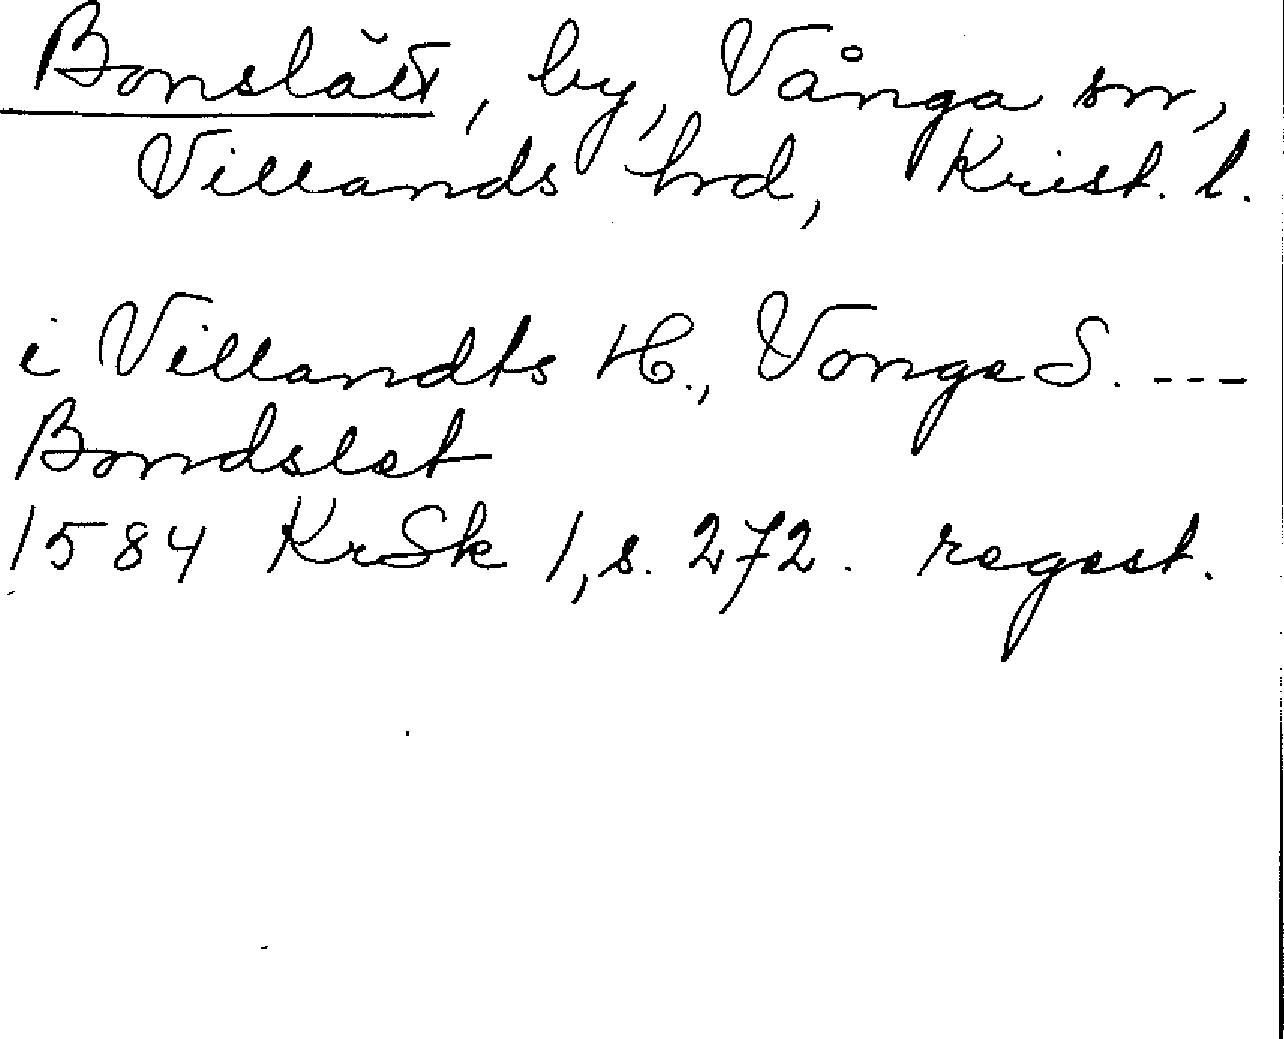 Bonslätt, by, Vånga sn,
Villands hrd, Krist. l.
i Villandts H., Vonge S. ---
Bondslet
1584 KrSk 1, s. 272. regest.